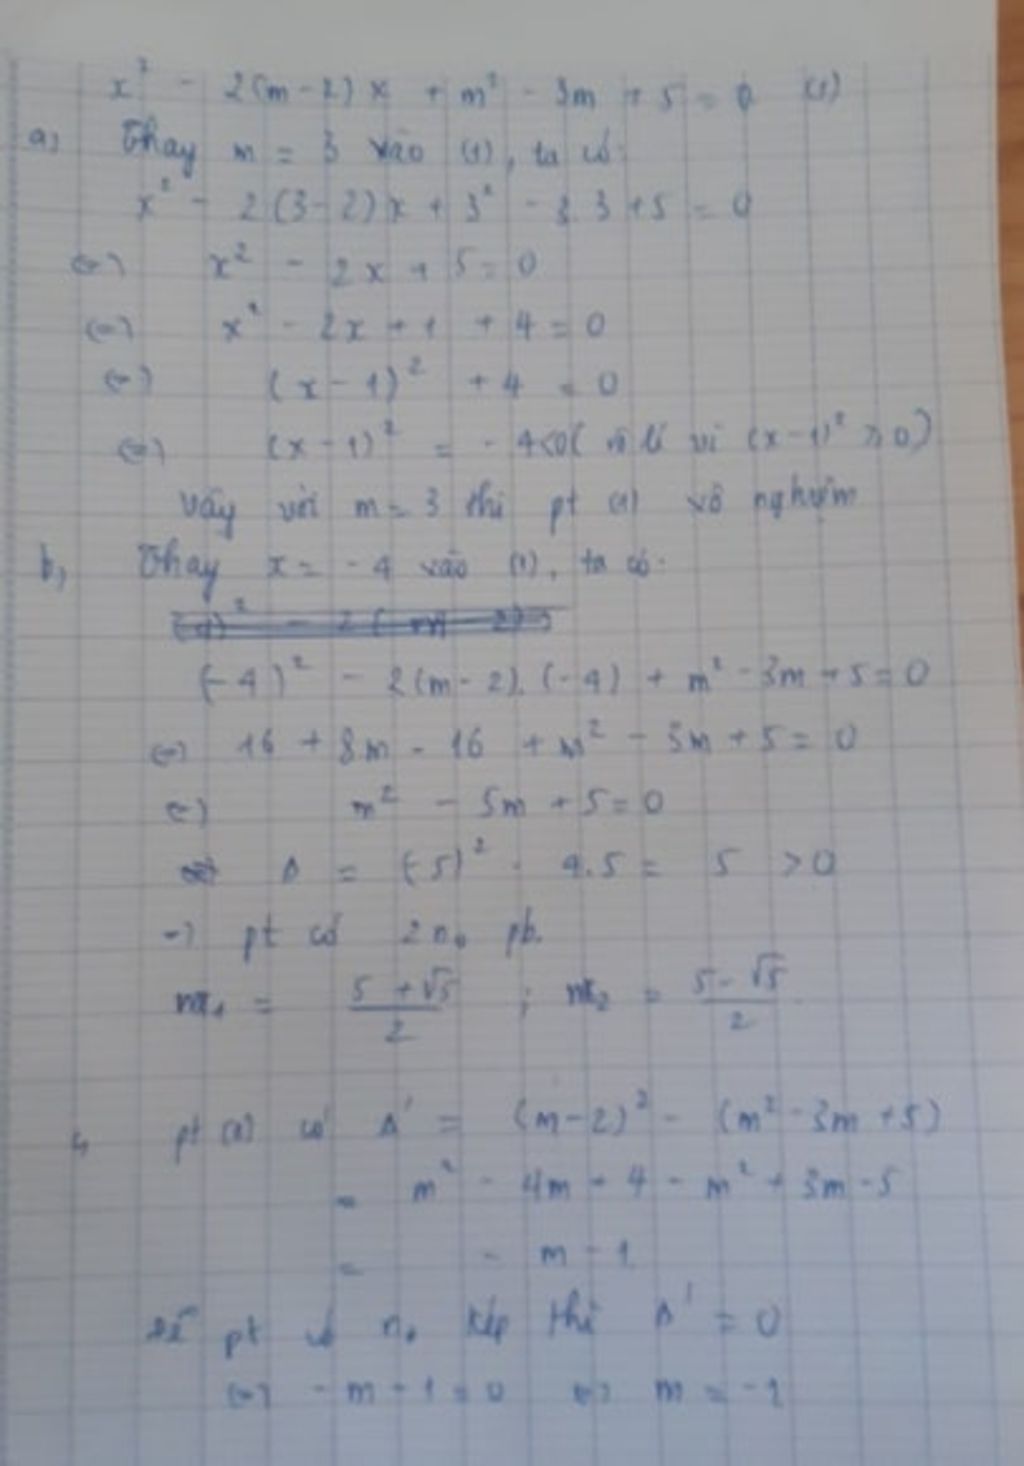 x² - 2(m-2)x + m² - 3m + 5 = 0 (1)
a) Thay m = 3 vào (1), ta có:
x² - 2(3-2)x + 3² - 3.3 + 5 = 0
(=) x² - 2x + 5 = 0
(=) x² - 2x + 1 + 4 = 0
(=) (x-1)² + 4 = 0
(=) (x-1)² = -4<0( vô lí vì (x-1)² ≥0)
Vậy với m = 3 thì pt (1) vô nghiệm
b, Thay x = -4 vào (1), ta có:
(-4)² - 2(m-2).(-4) + m² - 3m + 5 = 0
(=) 16 + 8m - 16 + m² - 3m + 5 = 0
(=) m² - 5m + 5 = 0
Δ = (-5)² - 4.5 = 5 > 0
=) pt có 2 n₀ pb.
m₁ = (5 + √5)/2 ; m₂ = (5 - √5)/2
c, pt (1) có Δ' = (m-2)² - (m² - 3m + 5)
= m² - 4m + 4 - m² + 3m - 5
= - m - 1
Để pt có n₀ kép thì Δ' = 0
(=) - m - 1 = 0 (=) m = -1